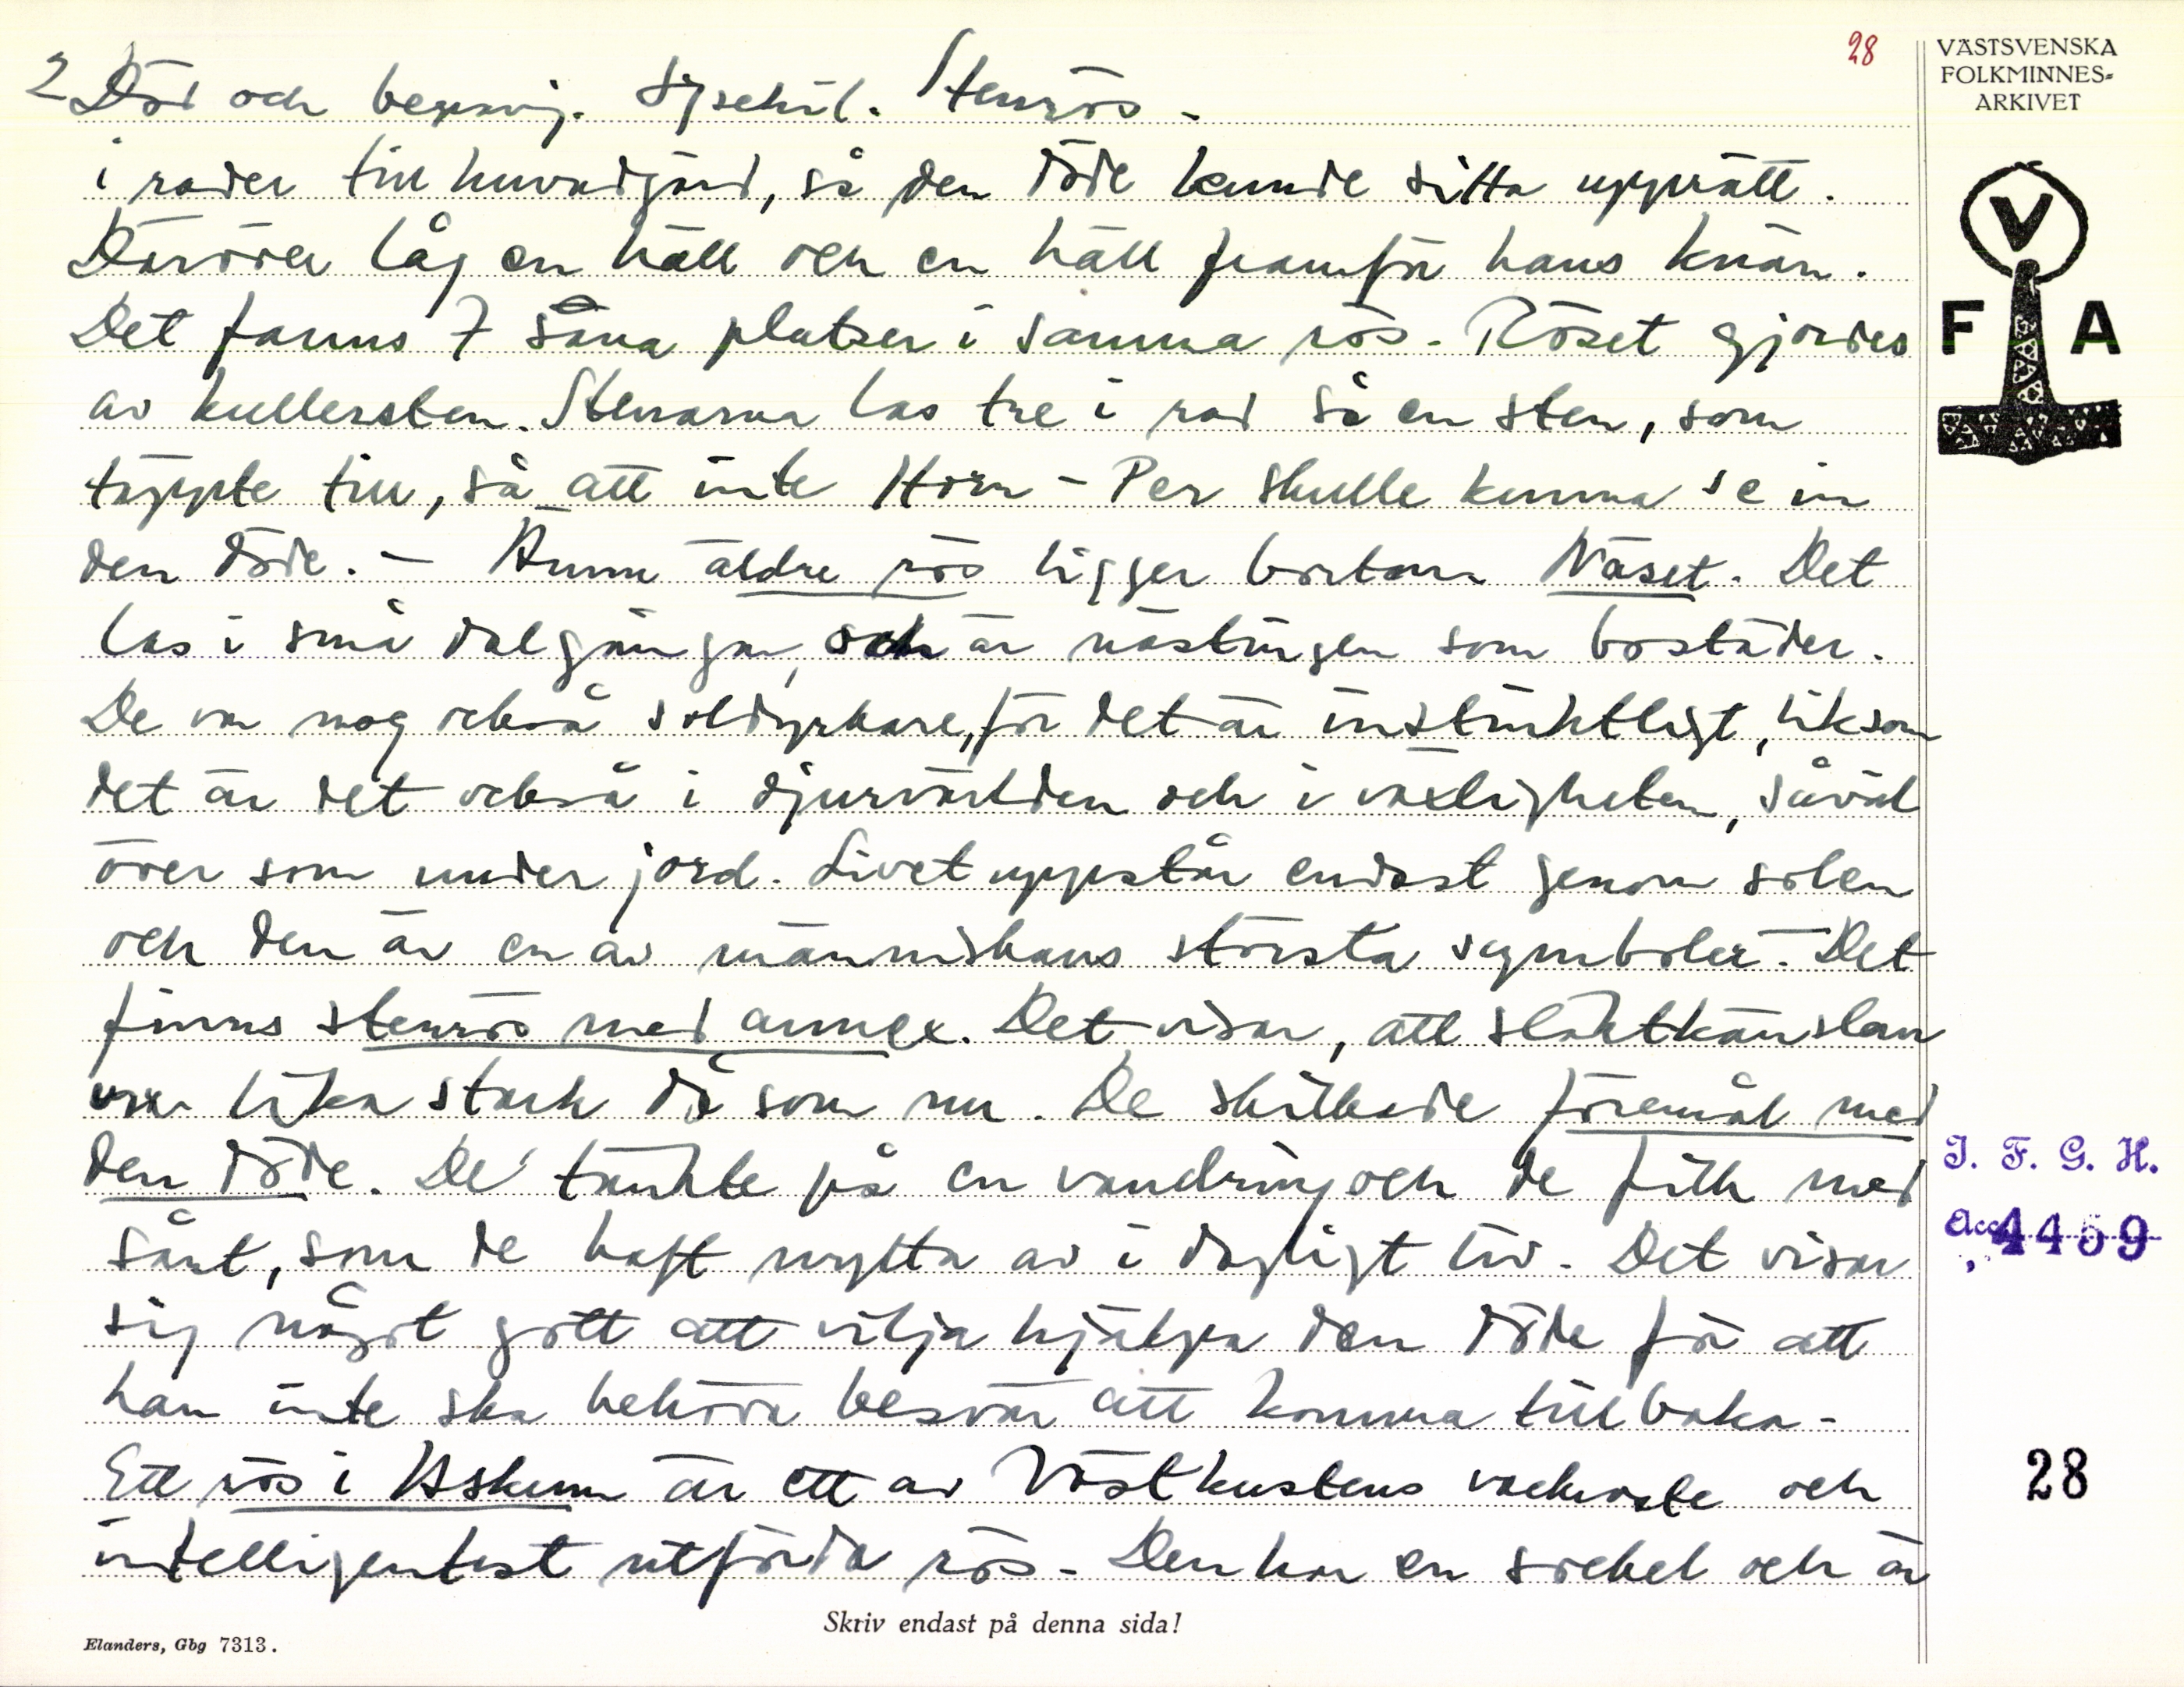 28
VÄSTSVENSKA
FOLKMINNES=
ARKIVET
2 Död och begravn. Stenrös.
i rader till huvudgärd, så den döde kunde sitta upprätt.
Däröver låg en häll och en häll framför hans knän.
Det fanns 7 såna platser i samma rös. Röset gjordes
av kullersten. Stenarna las tre i rad så en sten, som
täppte till, så att inte Horn-Per skulle kunna se in
den döde. — Ännu äldre rös ligger bortom Näset. Det
las i små dalgångar, och är nästingen som bostäder.
De var nog också soldyrkare, för det är instinktligt, liksom
det är det också i djurvärlden och i växligheten, såväl
över som under jord. Livet uppstår endast genom solen
och den är en av människans största symboler. Det
finns stenrös med annex. Det visar, att släktkänslan
var lika stark då som nu. De skickade föremål med
den döde. De tänkte på en vandring och de fick med
sånt, som de haft nytta av i dagligt liv. Det visar
sig något gott att vilja hjälpa den döde för att
han inte ska behöva besvär att komma tillbaka.
Ett rös i Askum är ett av Västkustens vackraste och
intelligentast utförda rös. Den har en sockel och är
V
F A
I. F. G. H.
Acc. 4459
28
Skriv endast på denna sida!
Elanders, Gbg 7313.